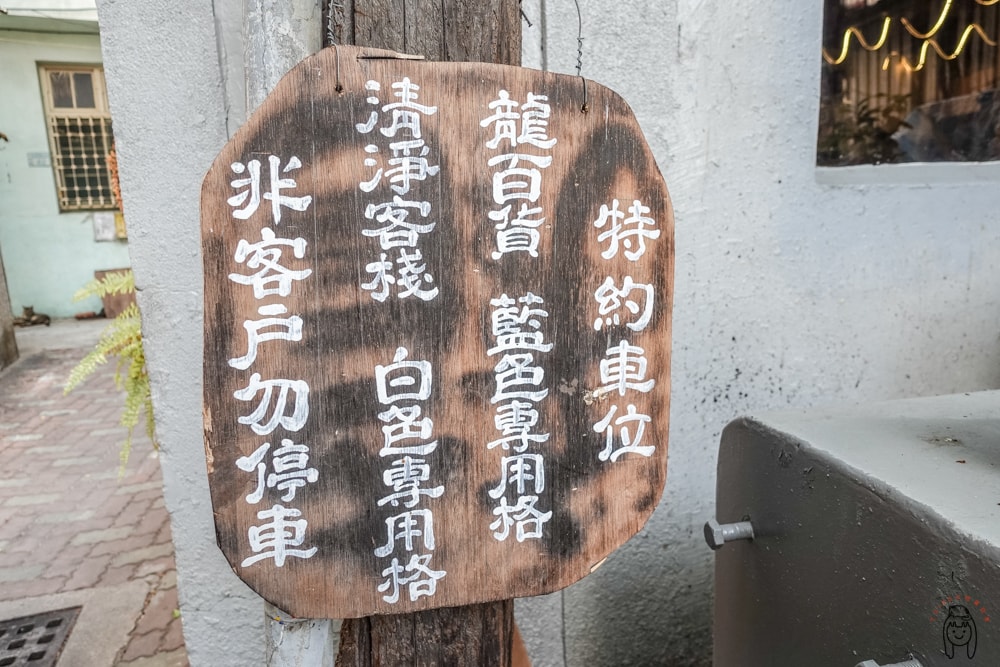 特約車位
龍百貨 藍色專用格
清淨客棧 白色專用格
非客戶勿停車